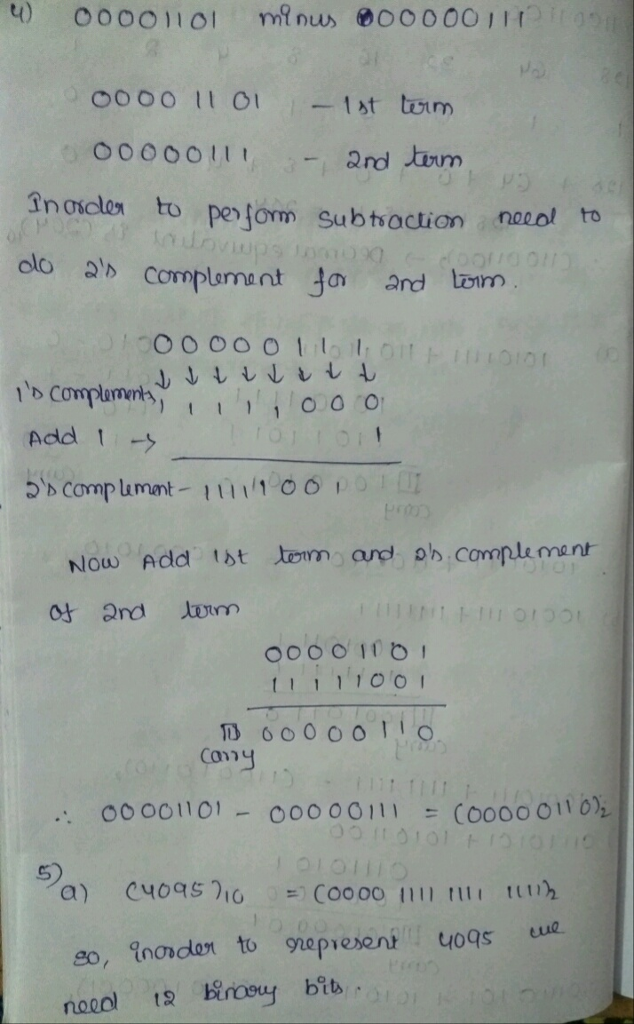 4) 00001101 minus 000000111
00001101 - 1st term
00000111 - 2nd term
Inorder to perform subtraction need to
do 2's complement for 2nd term.
00000111
↓ ↓ ↓ ↓ ↓ ↓ ↓ ↓
1's complement 1 1 1 1 1 0 0 0
Add 1 → 1
2's complement - 11111001
Now Add 1st term and 2's complement
of 2nd term
00001101
11111001
1 00000110
carry
∴ 00001101 - 00000111 = (00000110)2
5)
a) (4095)10 = (0000 1111 1111 1111)2
so, inorder to represent 4095 we
need 12 binary bits.